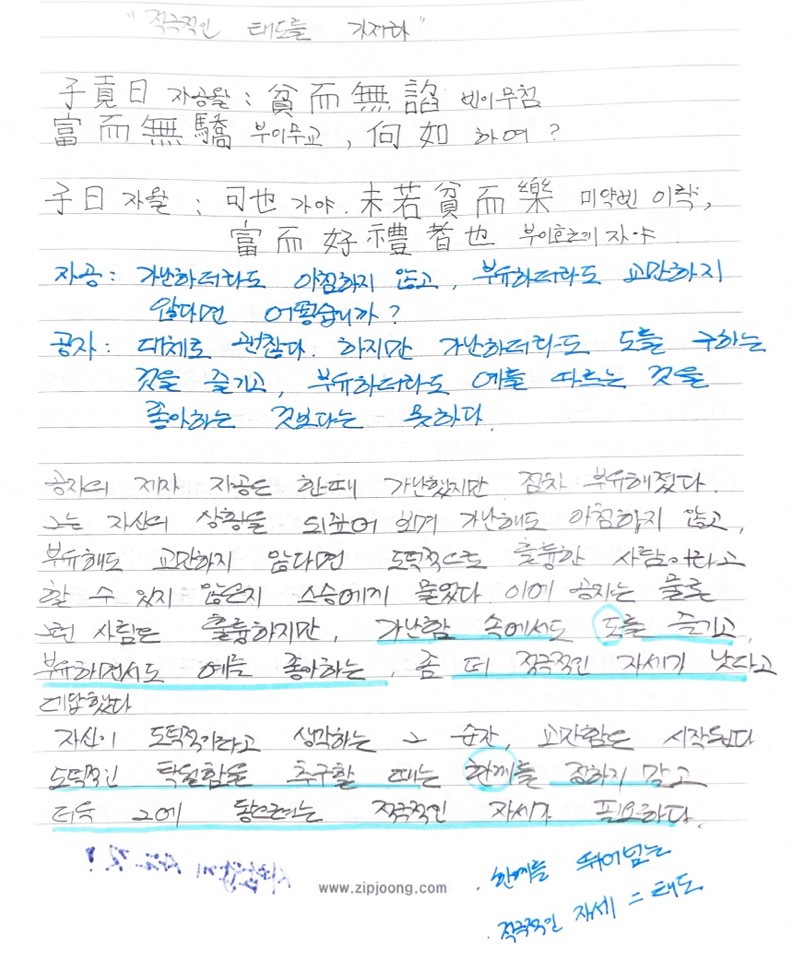 "적극적인 태도를 가져라"
子貢曰 자공왈 : 貧而無諂 빈이무첨
富而無驕 부이무교, 何如 하여?
子曰 자왈 : 可也 가야. 未若貧而樂 미약빈이락,
富而好禮者也 부이호례자야.
자공 : 가난하더라도 아첨하지 않고, 부유하더라도 교만하지
않다면 어떻습니까?
공자 : 대체로 괜찮다. 하지만 가난하더라도 도를 구하는
것을 즐기고, 부유하더라도 예를 따르는 것을
좋아하는 것보다는 못하다.
공자의 제자 자공은 한때 가난했지만 점차 부유해졌다.
그는 자신의 상황을 되짚어 보며 가난해도 아첨하지 않고,
부유해도 교만하지 않다면 도덕적으로 훌륭한 사람이라고
할 수 있지 않은지 스승에게 물었다. 이에 공자는 물론
그런 사람은 훌륭하지만, 가난함 속에서도 도를 즐기고,
부유하면서도 예를 좋아하는, 좀 더 적극적인 자세가 낫다고
대답했다
자신이 도덕적이라고 생각하는 그 순간, 교만함은 시작된다
도덕적인 탁월함을 추구할 때는 한계를 정하지 말고
더욱 그에 닿으려는 적극적인 자세가 필요하다.
www.zipjoong.com
. 한계를 뛰어넘는
. 적극적인 자세 = 태도